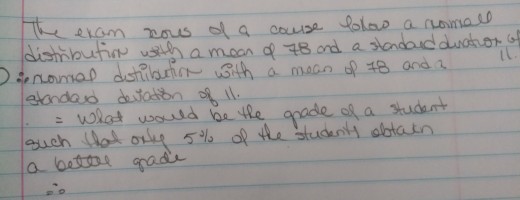 The exam scores of a course follow a normal
distribution with a mean of 78 and a standard deviation of 11.
∴ normal distribution with a mean of 78 and
standard deviation of 11.
= What would be the grade of a student
such that only 5% of the students obtain
a better grade
∴